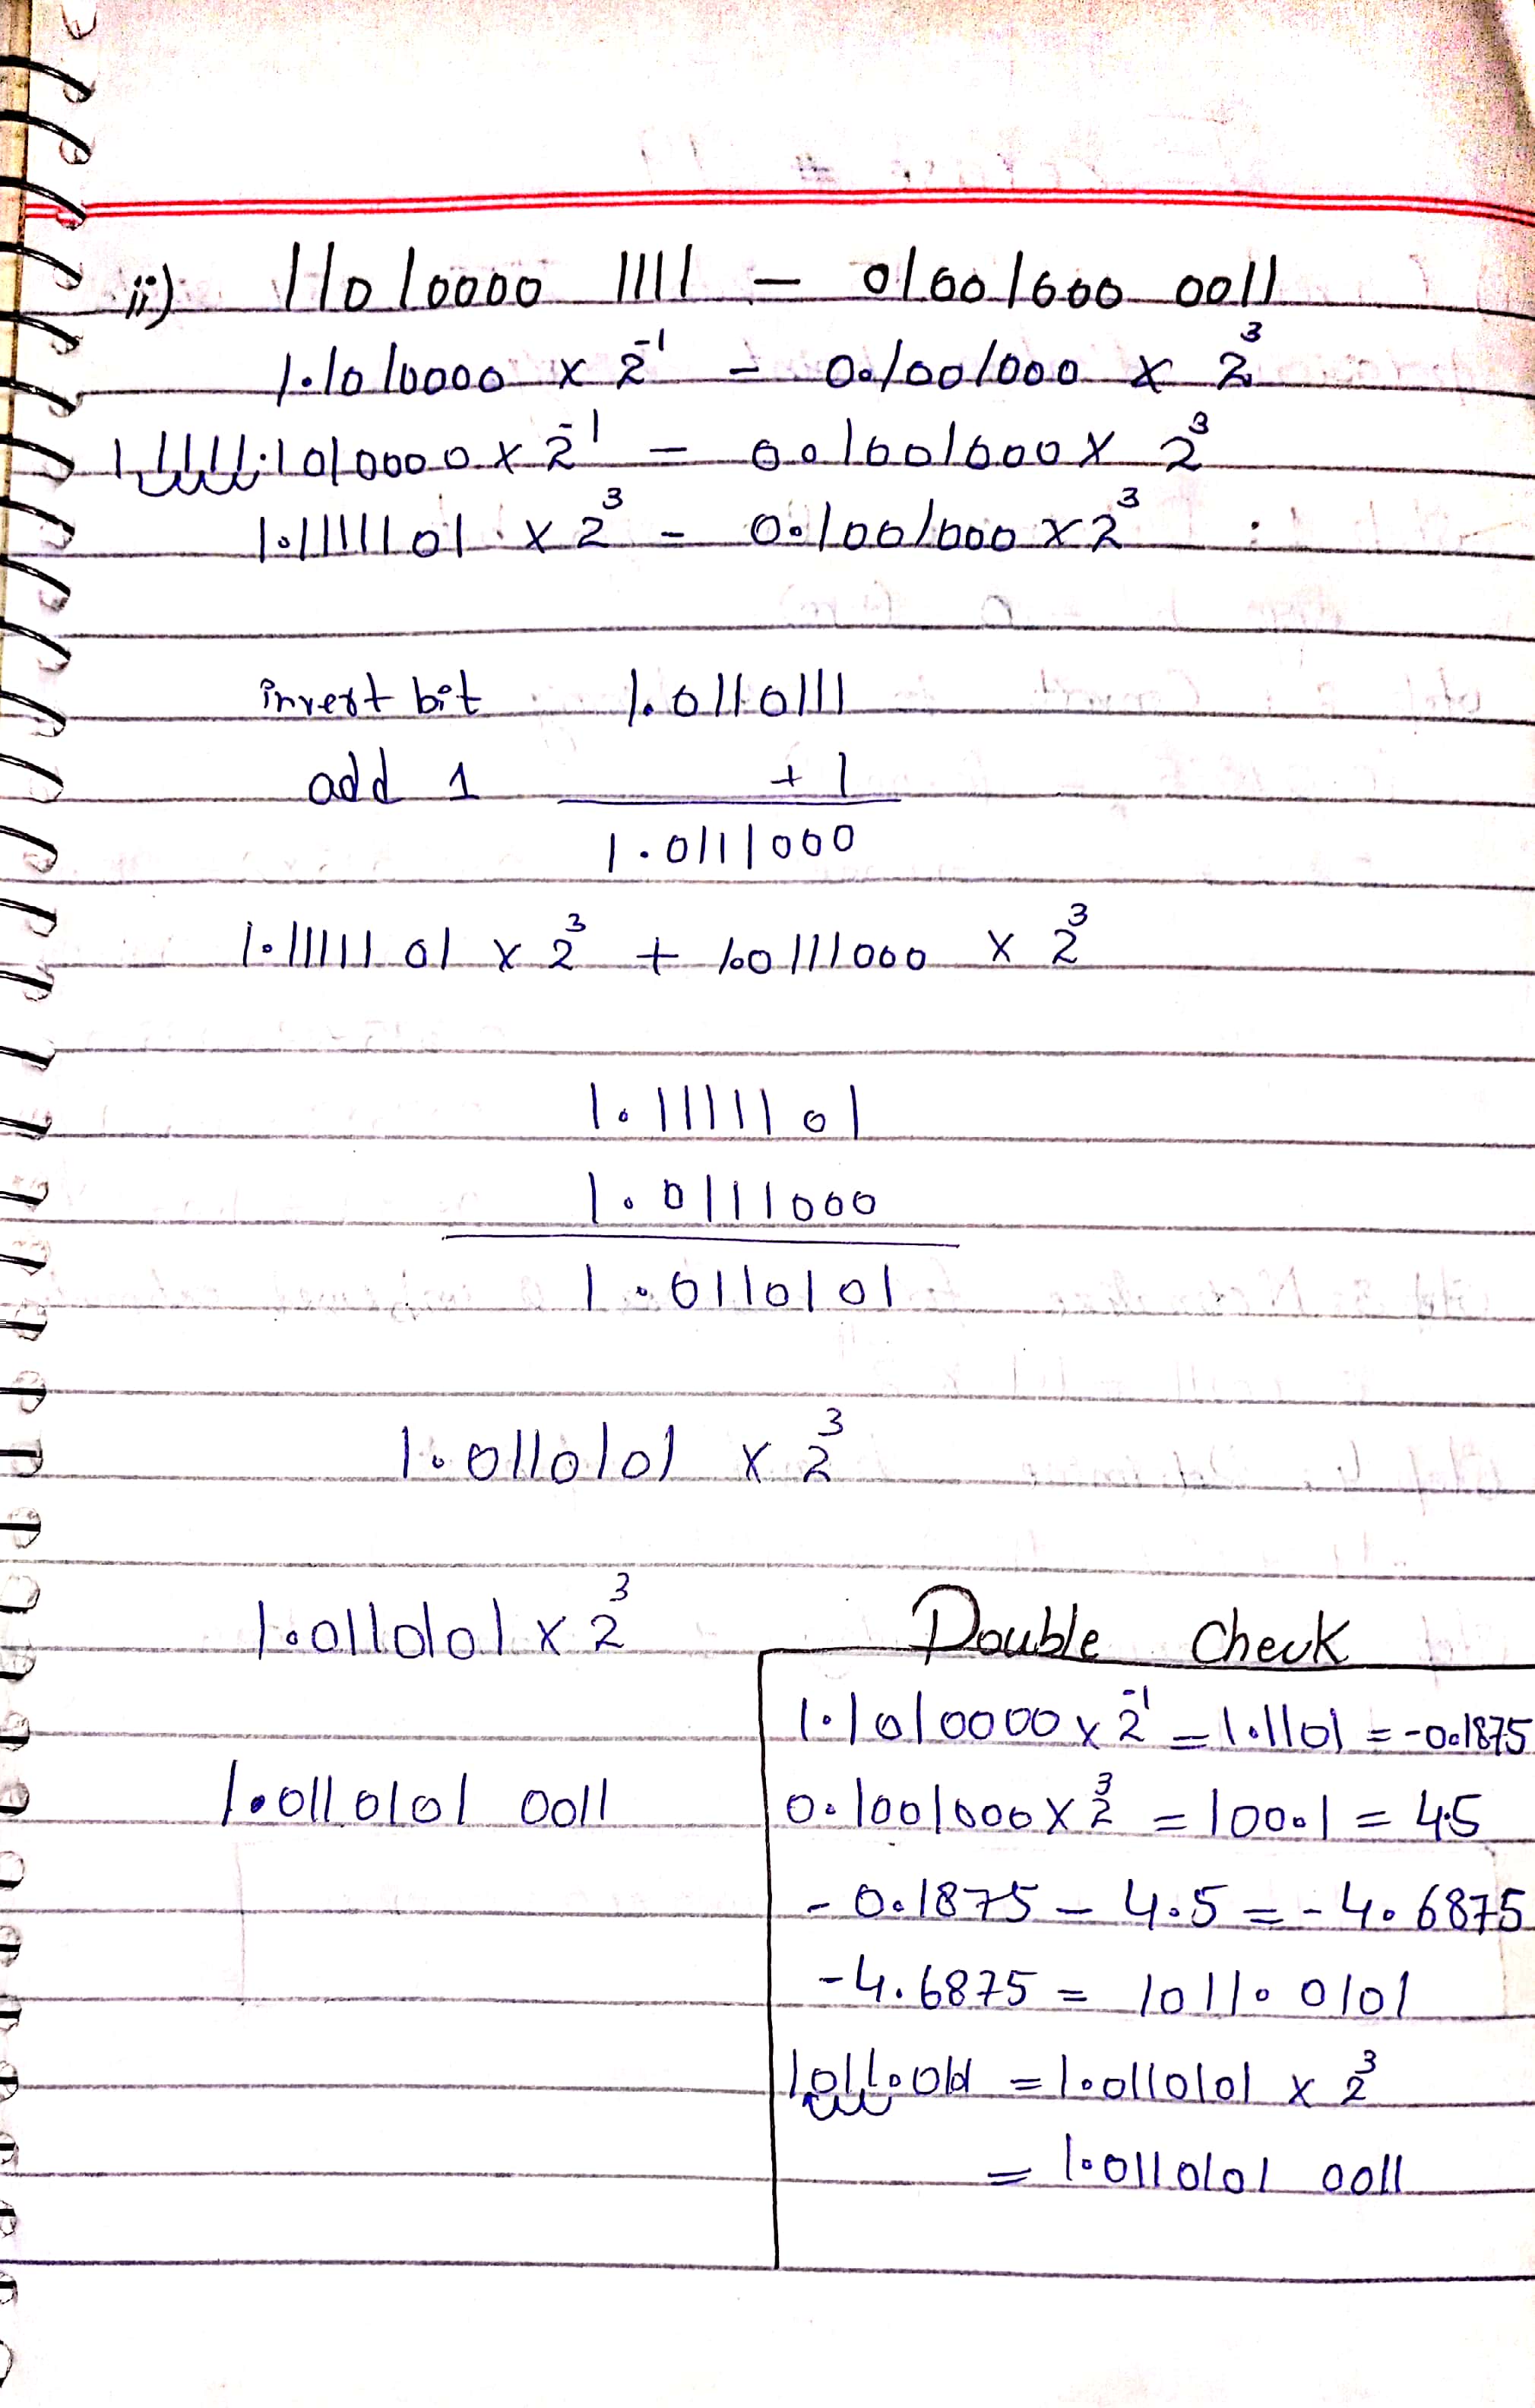 ii) 11010000 1111 - 01001000 0011
1.1010000 x 2⁻¹ - 0.1001000 x 2³
11111.1010000 x 2⁻¹ - 0.1001000 x 2³
1.1111101 x 2³ - 0.1001000 x 2³
invert bit 1.0110111
add 1 + 1
1.0111000
1.1111101 x 2³ + 1.0111000 x 2³
1.1111101
1.0111000
1.0110101
1.0110101 x 2³
1.0110101 x 2³
1.0110101 0011
Double Check
1.1010000 x 2⁻¹ = 1.1101 = -0.1875
0.1001000 x 2³ = 100.1 = 4.5
- 0.1875 - 4.5 = - 4.6875
-4.6875 = 1011.0101
1011.0101 = 1.0110101 x 2³
= 1.0110101 0011